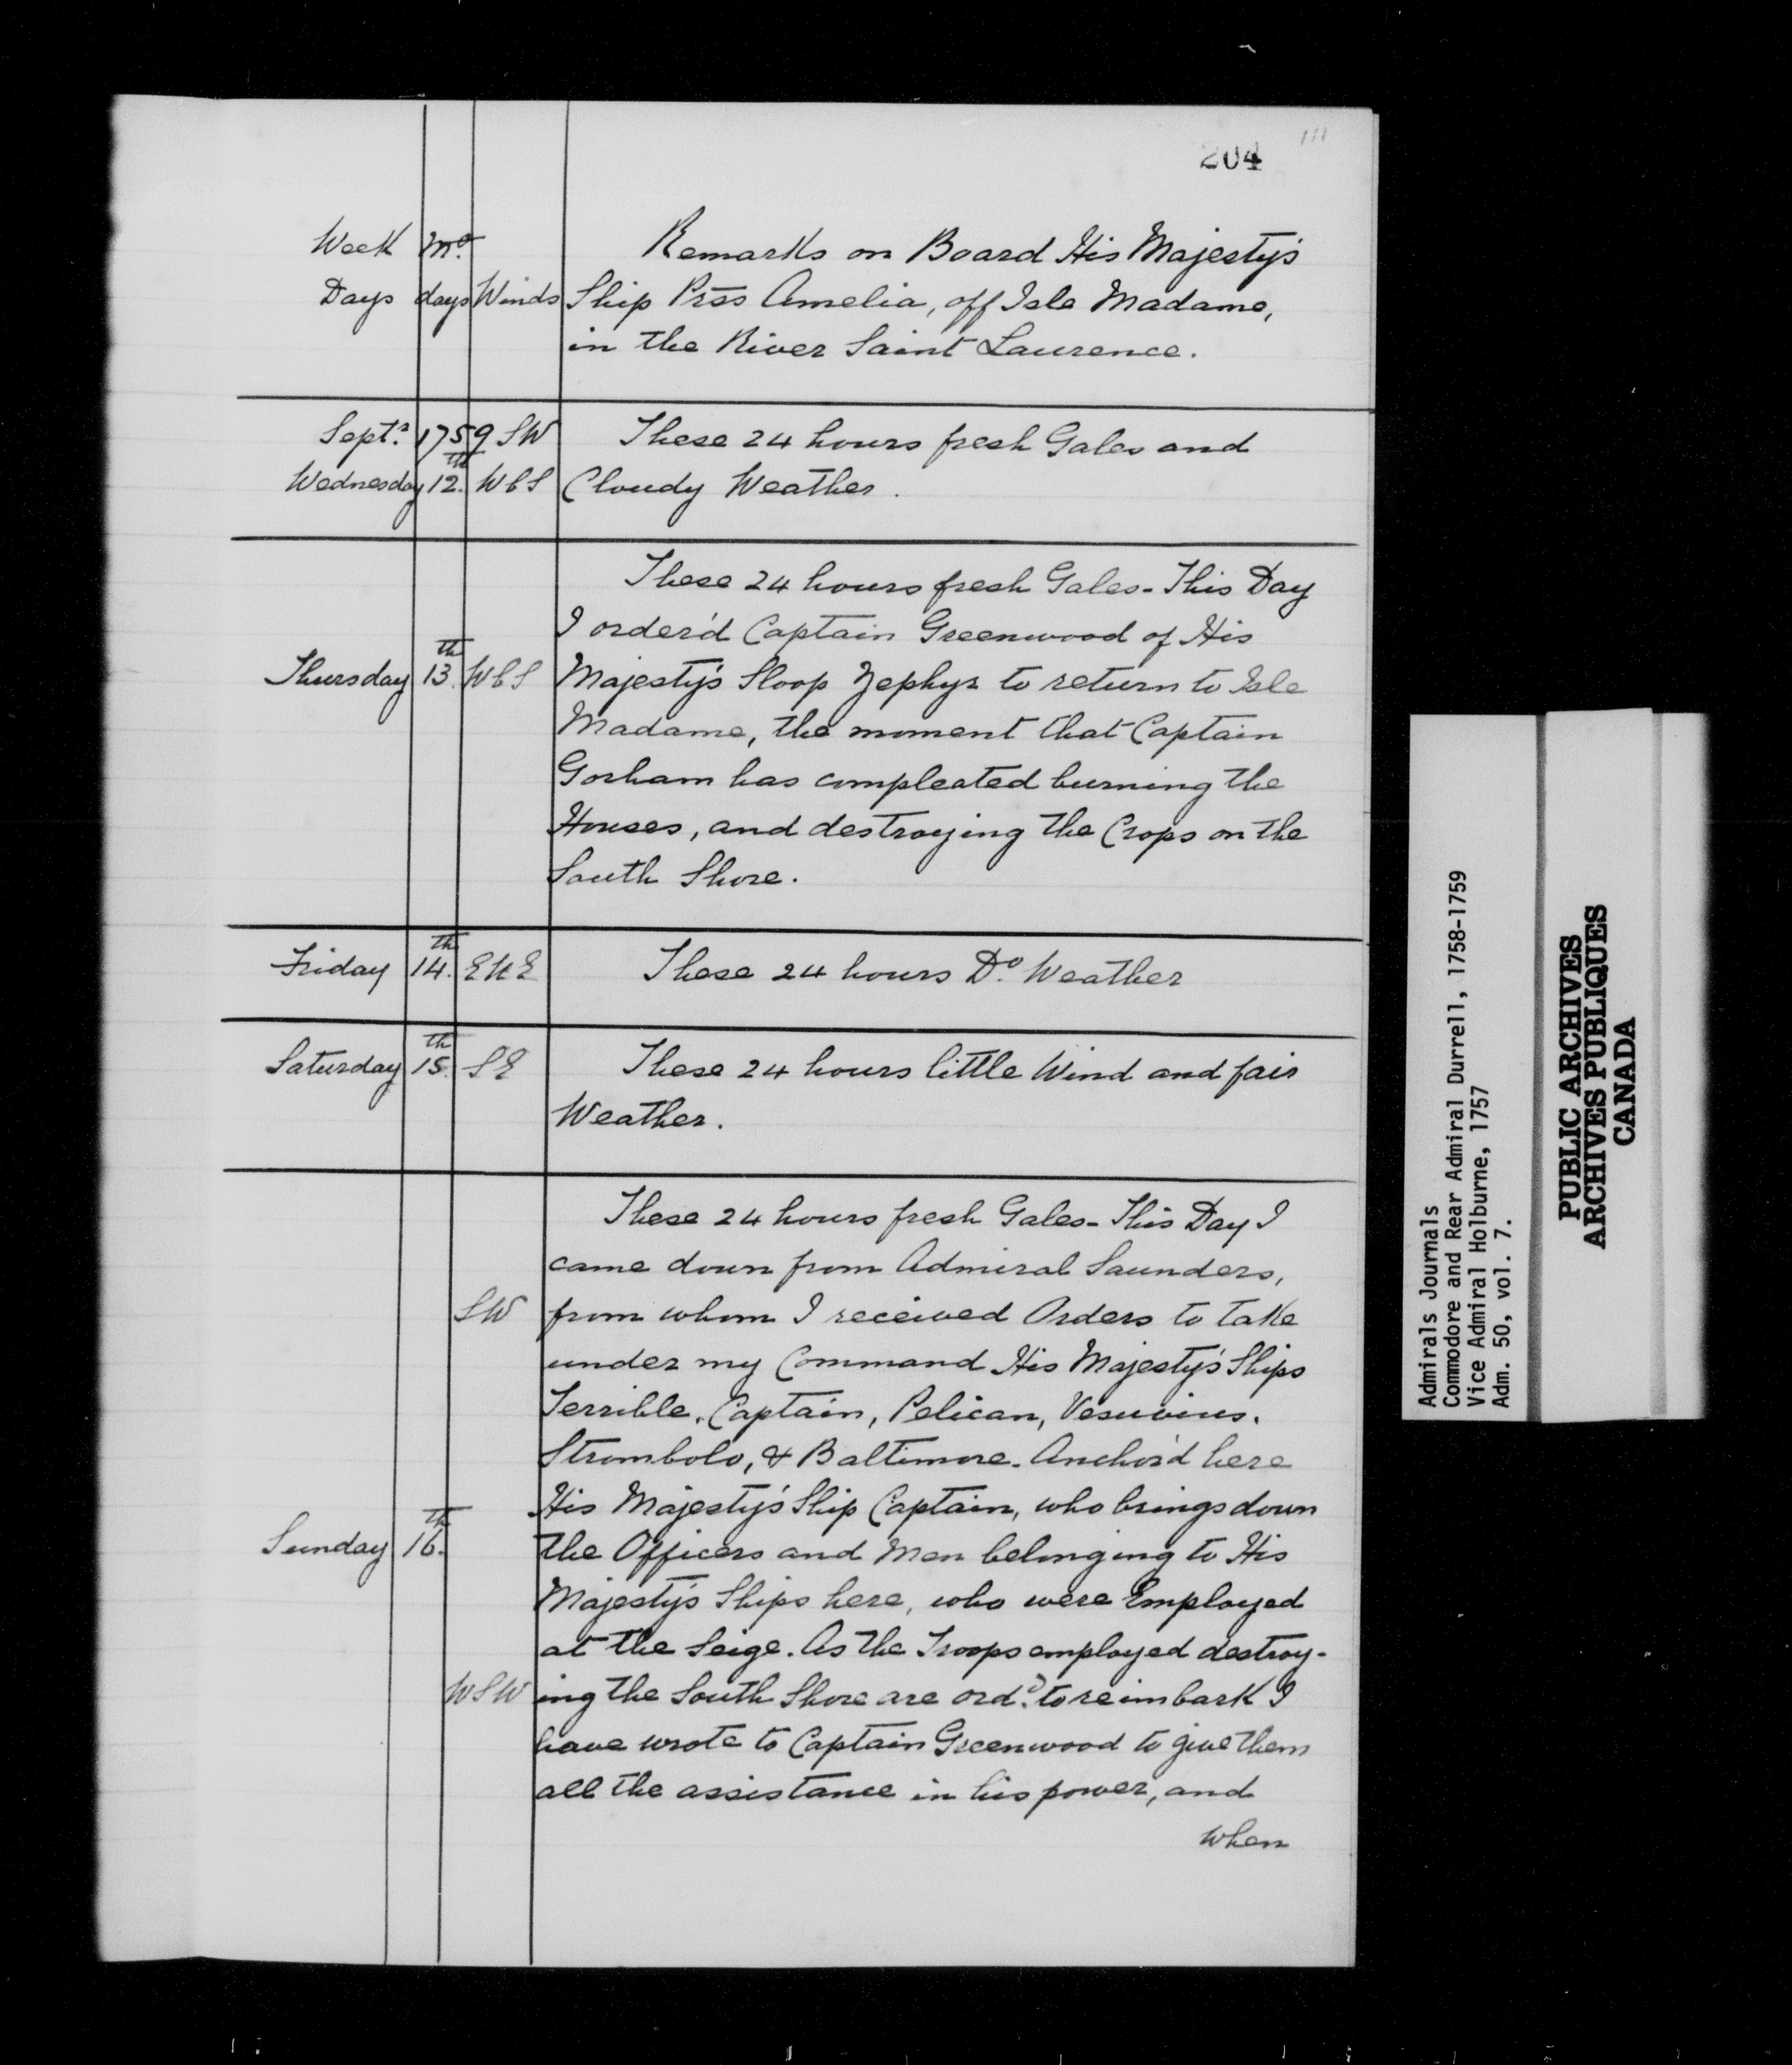 204
111
Week Mo. Remarks on Board His Majesty's
Days days Winds Ship Prss Amelia, off Isle Madame,
in the River Saint Laurence.
Septr. 1759 SW These 24 hours fresh Gales and
Wednesday 12th. WbS Cloudy Weather.
These 24 hours fresh Gales - This Day
I order'd Captain Greenwood of His
Thursday 13th. WbS Majesty's Sloop Zephyr to return to Isle
Madame, the moment that Captain
Gorham has compleated burning the
Houses, and destroying the Crops on the
South Shore.
Friday 14th. ENE These 24 hours Do. Weather
Saturday 15th. SE These 24 hours little Wind and fair
Weather.
These 24 hours fresh Gales - This Day I
came down from Admiral Saunders,
SW from whom I received Orders to take
under my Command His Majesty's Ships
Terrible, Captain, Pelican, Vesuvius,
Strombolo, & Baltimore. Anchor'd here
His Majesty's Ship Captain, who brings down
Sunday 16th. the Officers and Men belonging to His
Majesty's Ships here, who were Employed
at the Seige. As the Troops employed destroy-
WSW ing the South Shore are ord'd. to reimbark I
have wrote to Captain Greenwood to give them
all the assistance in his power, and
when
Admirals Journals
Commodore and Rear Admiral Durrell, 1758-1759
Vice Admiral Holburne, 1757
Adm. 50, vol. 7.
PUBLIC ARCHIVES
ARCHIVES PUBLIQUES
CANADA